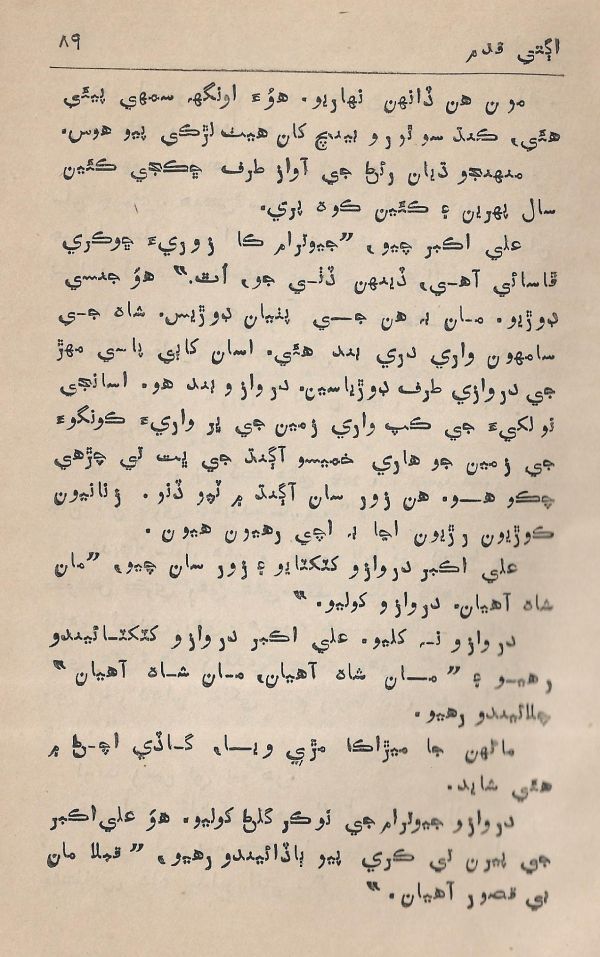 اڳتي قدم ۸۹
مون هن ڏانهن نهاريو. هوُءَ اونگهہ سمهي پيئي
هئي، ڪنڌ سو ٿورو بينچ کان هيٺ لڙڪي پيو هوس.
منهنجو ڌيان رئڻ جي آواز طرف ڇڪجي ڪئين
سال پهرين ۽ ڪئين ڪوهہ پري.
علي اڪبر چيو، ”جيوٽرام ڪا زوريءَ ڇوڪري
ڦاسائي آهي، ڏينهن ڏٺي جو، اُٿ.“ هوُ جنسي
ڊوڙيو. مان بہ هن جي پٺيان ڊوڙيس. شاهہ جي
سامهون واري دري بند هئي. اسان کاٻي پاسي مهڙ
جي دروازي طرف ڊوڙياسين. دروازو بند هو. اسانجي
ٽولڪيءَ جي ڪپ واري زمين جي ڀر واريءَ ڪونگوءَ
جي زمين جو هاري خميسو آڳنڌ جي ڀت تي چڙهي
چڪو هو. هن زور سان آڳنڌ ۾ ٽپو ڏنو. زنانيون
ڪوڙيون رڙيون اڃا بہ اچي رهيون هيون.
علي اڪبر دروازو کٽڪٽايو ۽ زور سان چيو، ”مان
شاهہ آهيان. دروازو کوليو.“
دروازو نہ کليو. علي اڪبر دروازو کٽڪٽائيندو
رهيو ۽ ”مان شاهہ آهيان، مان شاهہ آهيان“
چلائيندو رهيو.
ماڻهن جا ميڙاڪا مڙي ويا، گاڏي اچڻ ۾
هئي شايد.
دروازو جيوٽرام جي نوڪر گلڻ کوليو. هوُ علي اڪبر
جي پيرن تي ڪري پيو ٻاڏائيندو رهيو، ”قبلا مان
بي قصور آهيان.“